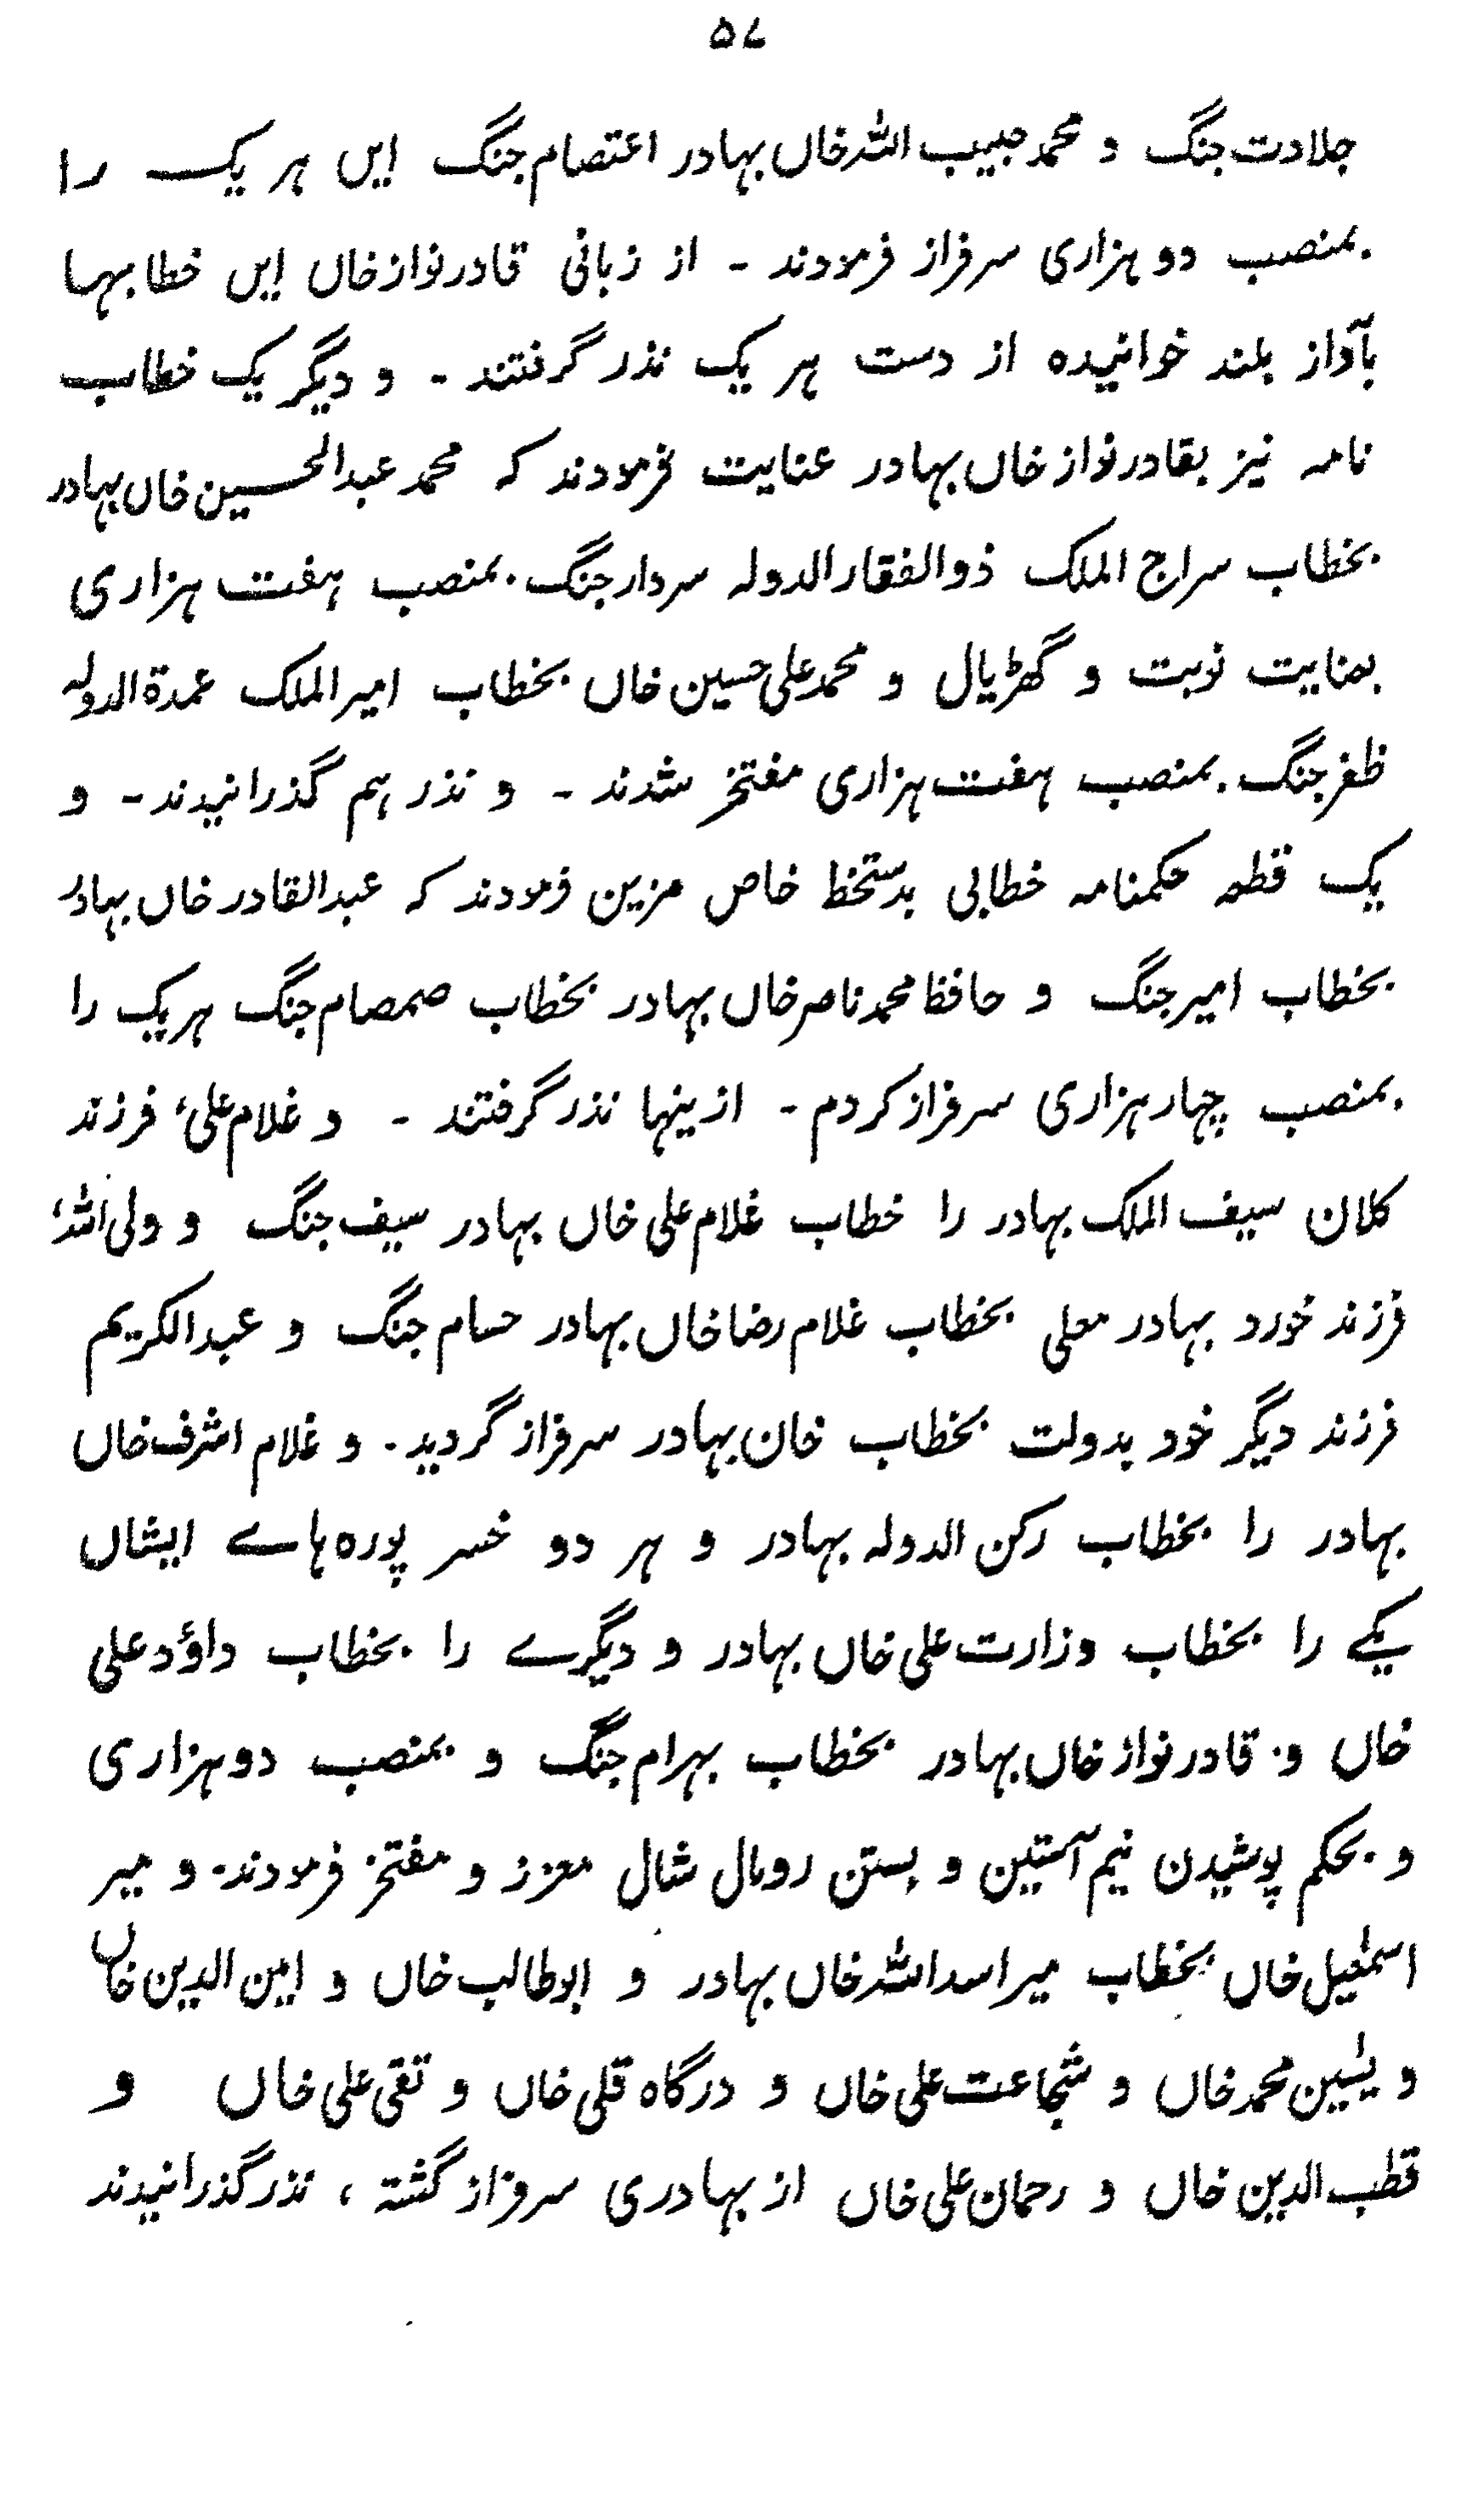 ۵۷
جلادت جنگ و محمد حبیب اللہ خاں بہادر اعتصام جنگ ایں ہر یک را
بمنصب دو ہزاری سرفراز فرمودند ـ از زبانی قادر نواز خاں ایں خطابہا
بآواز بلند خوانیدہ از دست ہر یک نذر گرفتند ـ و دیگر یک خطاب
نامہ نیز بقادر نواز خاں بہادر عنایت فرمودند کہ محمد عبدالحسین خاں بہادر
بخطاب سراج الملک ذوالفقار الدولہ سردار جنگ بمنصب ہفت ہزاری
بعنایت نوبت و گھڑیال و محمد علی حسین خاں بخطاب امیر الملک عمدۃ الدولہ
ظفر جنگ بمنصب ہفت ہزاری مفتخر شدند ـ و نذر ہم گذرانیدند ـ و
یک قطعہ حکمنامہ خطابی بدستخط خاص مزین فرمودند کہ عبدالقادر خاں بہادر
بخطاب امیر جنگ و حافظ محمد ناصر خاں بہادر بخطاب صمصام جنگ ہر یک را
بمنصب چہار ہزاری سرفراز کردم ـ ازینہا نذر گرفتند ـ و غلام علی، فرزند
کلان سیف الملک بہادر را خطاب غلام علی خاں بہادر سیف جنگ و ولی اللہ،
فرزند خورد بہادر معلی بخطاب غلام رضا خاں بہادر حسام جنگ و عبدالکریم
فرزند دیگر خود بدولت بخطاب خان بہادر سرفراز گردید ـ و غلام اشرف خاں
بہادر را بخطاب رکن الدولہ بہادر و ہر دو خسر پورہ ہاے ایشاں
یکے را بخطاب وزارت علی خاں بہادر و دیگرے را بخطاب داؤد علی
خاں و قادر نواز خاں بہادر بخطاب بہرام جنگ و بمنصب دو ہزاری
و بحکم پوشیدن نیم آستین و بستن رومال شال معزز و مفتخر فرمودند ـ و میر
اسمٰعیل خاں بخطاب میر اسد اللہ خاں بہادر و ابوطالب خاں و امین الدین خاں
و یٰسین محمد خاں و شجاعت علی خاں و درگاہ قلی خاں و تقی علی خاں و
قطب الدین خاں و رحمان علی خاں از بہادری سرفراز گشتہ ، نذر گذرانیدند